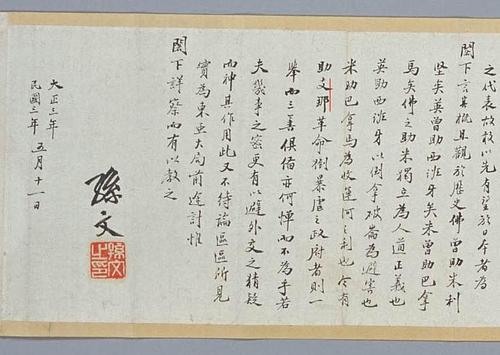 之代表故敢以先有望於日本者為
閣下言其概且觀於歷史佛曾助米利
堅矣英曾助西班牙矣米曾助巴拿
馬矣佛之助米獨立為人道正義也
英助西班牙以倒拿坡崙為避害也
米助巴拿馬為收運河之利也今有
助支那革命倒暴虐之政府者則一
舉而三善俱備亦何憚而不為乎若
夫幾事之密更有以避外交之猜疑
而神其作用此又不待論區區所見
實為東亞大局前途計惟
閣下詳察而有以教之
大正三年
民國三年
五月十一日
孫文
孫文之印